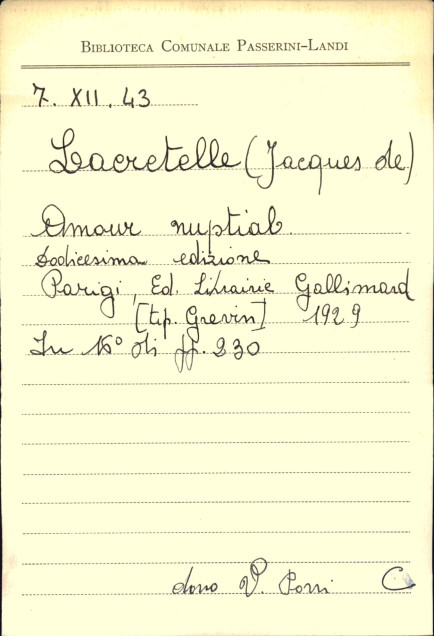 BIBLIOTECA COMUNALE PASSERINI-LANDI
7. XII. 43
Lacretelle (Jacques de)
Amour nuptial.
Dodicesima edizione
Parigi, Ed. Librairie Gallimard
[tip. Grevin] 1929
In 16° pp. 230
dono V. Porri C